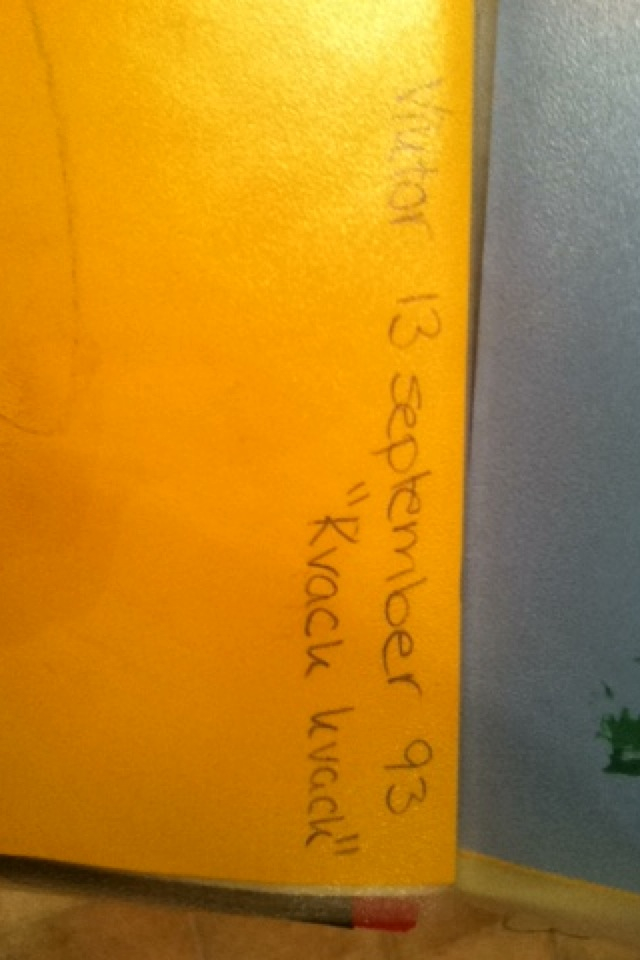 Viktor 13 september 93
"Kvack kvack"